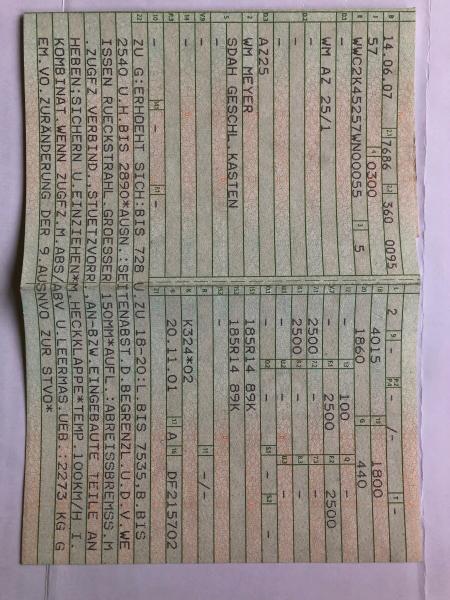 14.06.07 7686 360 0095 2 - - -/- -
57 0300 4015 1800
WWC2K45257WN00055 5 1860 440
- - 100 -
WM AZ 25/1 - 2500 2500
- 2500 - -
- 2500 - - -
AZ25 - - - -
WM MEYER 185R14 89K
SDAH GESCHL.KASTEN 185R14 89K
- - -
- - -/-
- K324*02
- 20.11.01 A DF215702
- - -
ZU G:ERHOEHT SICH:BIS 728 U.ZU 18-20:L.BIS 7535.B.BIS
2540 U.H.BIS 2890*AUSN.:SEITENABST.D.BEGRENZL.U.D.V.WE
ISSEN RUECKSTRAHL.GROESSER 150MM*AUFL.:ABREISSBREMSS.M
.ZUGFZ.VERBIND.,STUETZVORR.,AN-BZW.EINGEBAUTE TEILE AN
HEBEN:SICHERN U.EINZIEHEN*M.HECKKLAPPE*TEMP.100KM/H I.
KOMBINAT.WENN ZUGFZ.M.ABS/ABV U.LEERMAS.UEB.:2273 KG G
EM.VO.ZURÄNDERUNG DER 9.AUSNVO ZUR STVO*